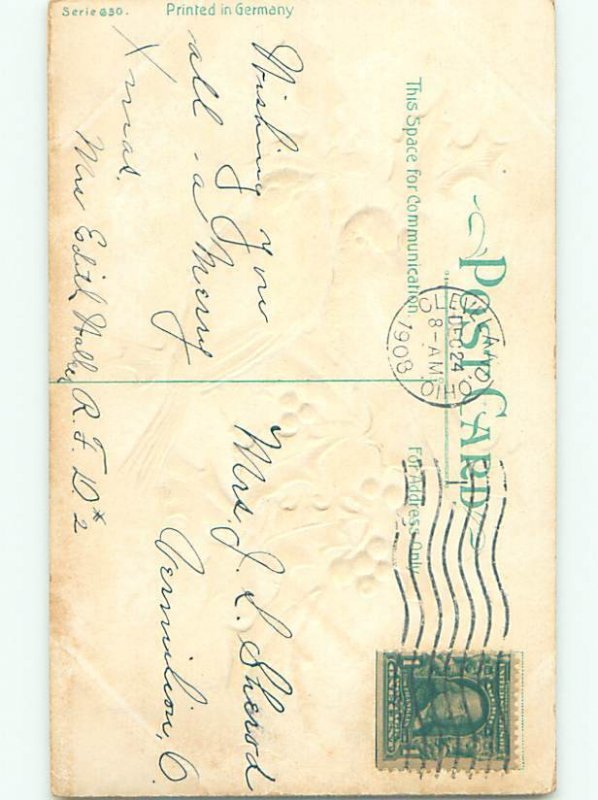 Serie 630.
Printed in Germany
POST CARD
This Space for Communication.
For Address Only
CLEVELAND
DEC 24
8-AM
1908
OHIO
Wishing you
all - a Merry
Xmas.
Mrs Edith
R. F. D. # 2
Mrs. J. L. Sherod
Vermilion, O.